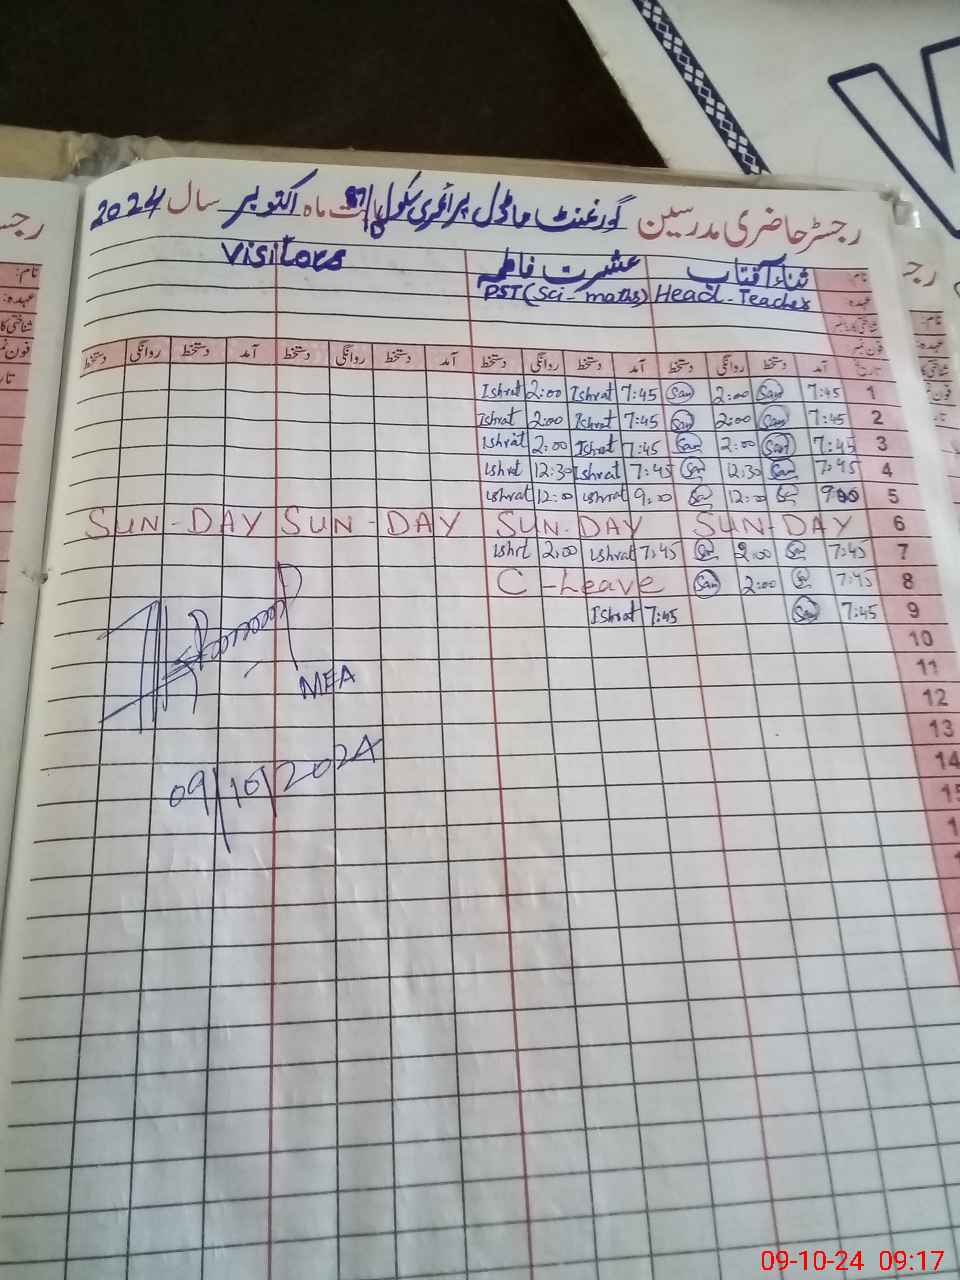 رجسٹر حاضری مدرسین گورنمنٹ ماڈل پرائمری سکول بابت ماہ اکتوبر سال 2024
نام: ثناء آفتاب عشرت فاطمہ Visitors
عہدہ: Head-Teacher PST (Sci-maths)
فون نمبر
تاریخ آمد دستخط روانگی دستخط آمد دستخط روانگی دستخط آمد دستخط روانگی دستخط آمد دستخط روانگی دستخط
1 7:45 San 2:00 San 7:45 Ishrat 2:00 Ishrat
2 7:45 San 2:00 San 7:45 Ishrat 2:00 Ishrat
3 7:45 San 2:00 San 7:45 Ishrat 2:00 Ishrat
4 7:45 San 12:30 San 7:45 Ishrat 12:30 Ishrat
5 9:00 12:00 9:00 Ishrat 12:00 Ishrat
6 SUN-DAY SUN-DAY SUN-DAY SUN-DAY
7 7:45 2:00 7:45 Ishrat 2:00 Ishrat
8 7:45 2:00 San C-Leave
9 7:45 San 7:45 Ishrat
10
11
12
13
14
15
MEA
09/10/2024
رجس
نام:
عہدہ:
شناختی کا
فون نمب
تار
رج
نام:
عہدہ:
09-10-24 09:17